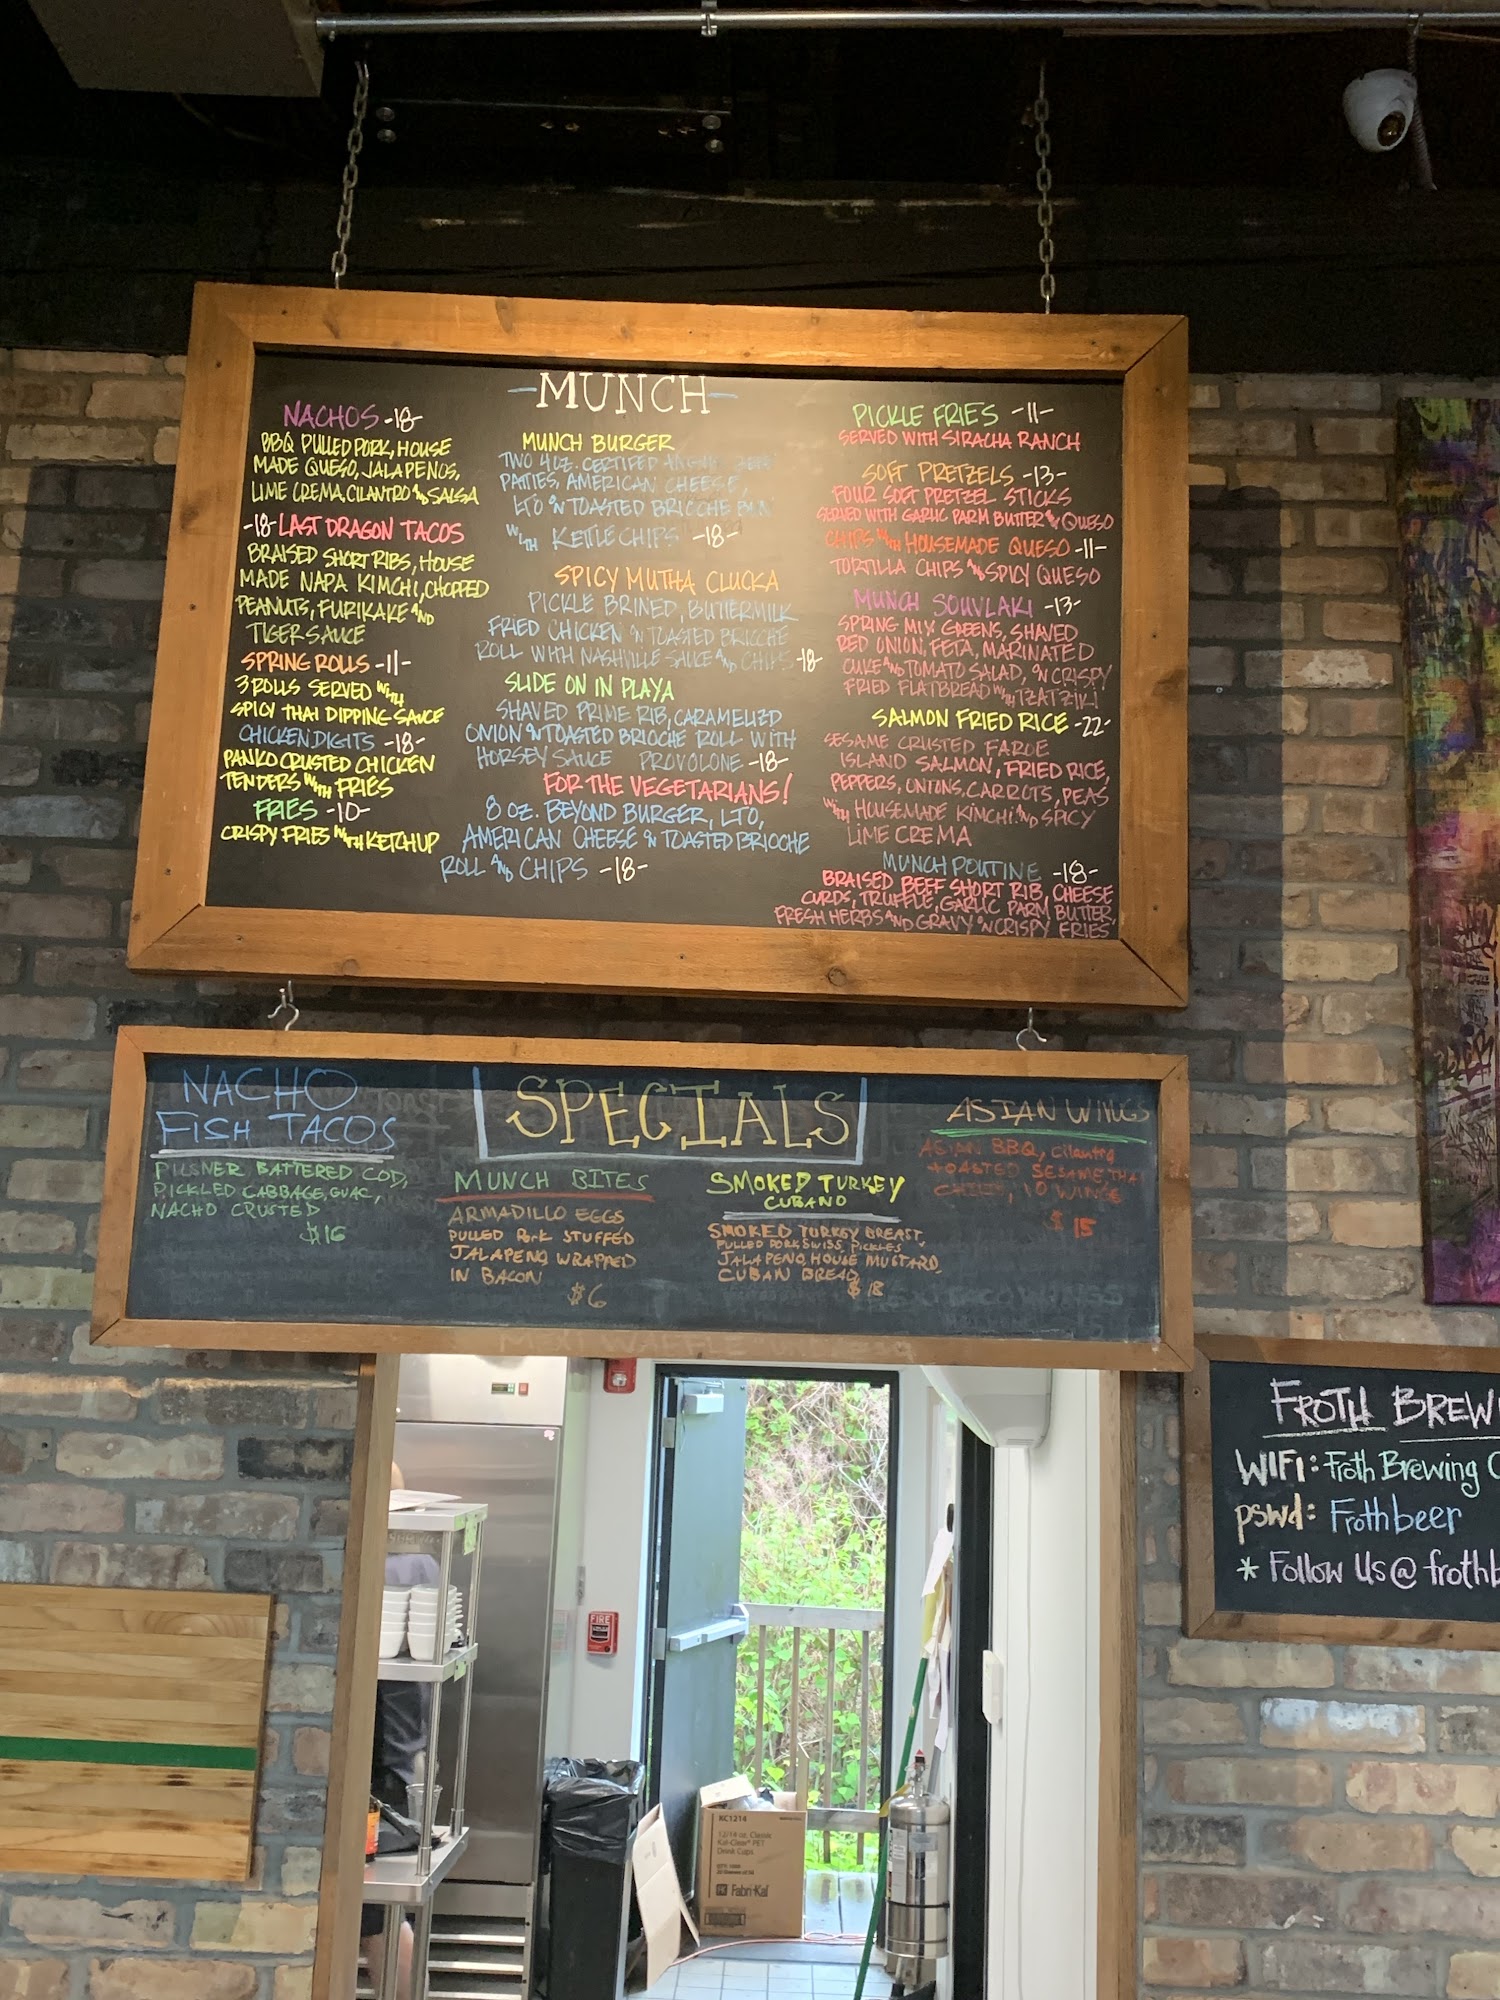 -MUNCH-
NACHOS -18-
BBQ PULLED PORK, HOUSE
MADE QUESO, JALAPENOS,
LIME CREMA, CILANTRO AND SALSA
-18- LAST DRAGON TACOS
BRAISED SHORT RIBS, HOUSE
MADE NAPA KIMCHI, CHOPPED
PEANUTS, FURIKAKE AND
TIGER SAUCE
SPRING ROLLS -11-
3 ROLLS SERVED WITH
SPICY THAI DIPPING SAUCE
CHICKEN DIGITS -18-
PANKO CRUSTED CHICKEN
TENDERS WITH FRIES
FRIES -10-
CRISPY FRIES WITH KETCHUP
MUNCH BURGER
TWO 4 OZ. CERTIFED ANGUS BEEF
PATTIES, AMERICAN CHEESE,
LTO ON TOASTED BRICCHE BUN
WITH KETTLE CHIPS -18-
SPICY MUTHA CLUCKA
PICKLE BRINED, BUTTERMILK
FRIED CHICKEN ON TOASTED BRICCHE
ROLL WITH NASHVILLE SAUCE AND CHIPS -18-
SLIDE ON IN PLAYA
SHAVED PRIME RIB, CARAMELIZD
ONION ON TOASTED BRIOCHE ROLL WITH
HORSEY SAUCE PROVOLONE -18-
FOR THE VEGETARIANS!
8 OZ. BEYOND BURGER, LTO,
AMERICAN CHEESE ON TOASTED BRIOCHE
ROLL AND CHIPS -18-
PICKLE FRIES -11-
SERVED WITH SIRACHA RANCH
SOFT PRETZELS -13-
FOUR SOFT PRETZEL STICKS
SERVED WITH GARLIC PARM BUTTER & QUESO
CHIPS WITH HOUSEMADE QUESO -11-
TORTILLA CHIPS AND SPICY QUESO
MUNCH SOUVLAKI -13-
SPRING MIX GREENS, SHAVED
RED ONION, FETA, MARINATED
CUKE AND TOMATO SALAD, ON CRISPY
FRIED FLATBREAD WITH TZATZIKI
SALMON FRIED RICE -22-
SESAME CRUSTED FAROE
ISLAND SALMON, FRIED RICE,
PEPPERS, ONIONS, CARROTS, PEAS
WITH HOUSEMADE KIMCHI AND SPICY
LIME CREMA
MUNCH POUTINE -18-
BRAISED BEEF SHORT RIB, CHEESE
CURDS, TRUFFLE, GARLIC PARM BUTTER,
FRESH HERBS AND GRAVY ON CRISPY FRIES
SPECIALS
NACHO
FISH TACOS
PILSNER BATTERED COD,
PICKLED CABBAGE, GUAC,
NACHO CRUSTED
$16
MUNCH BITES
ARMADILLO EGGS
PULLED PORK STUFFED
JALAPENO, WRAPPED
IN BACON
$6
SMOKED TURKEY
CUBANO
SMOKED TURKEY BREAST,
PULLED PORK, SWISS, PICKLES
JALAPENO, HOUSE MUSTARD,
CUBAN BREAD
$18
ASIAN WINGS
ASIAN BBQ, Cilantro
TOASTED SESAME, THAI
CHILIS, 10 WINGS
$15
FROTH BREWI
WIFI: Froth Brewing C
pswd: Frothbeer
* Follow Us @ frothb
FIRE
KC1214
12/14 oz. Classic
Kal-Clear PET
Drink Cups
Fabri-Kal